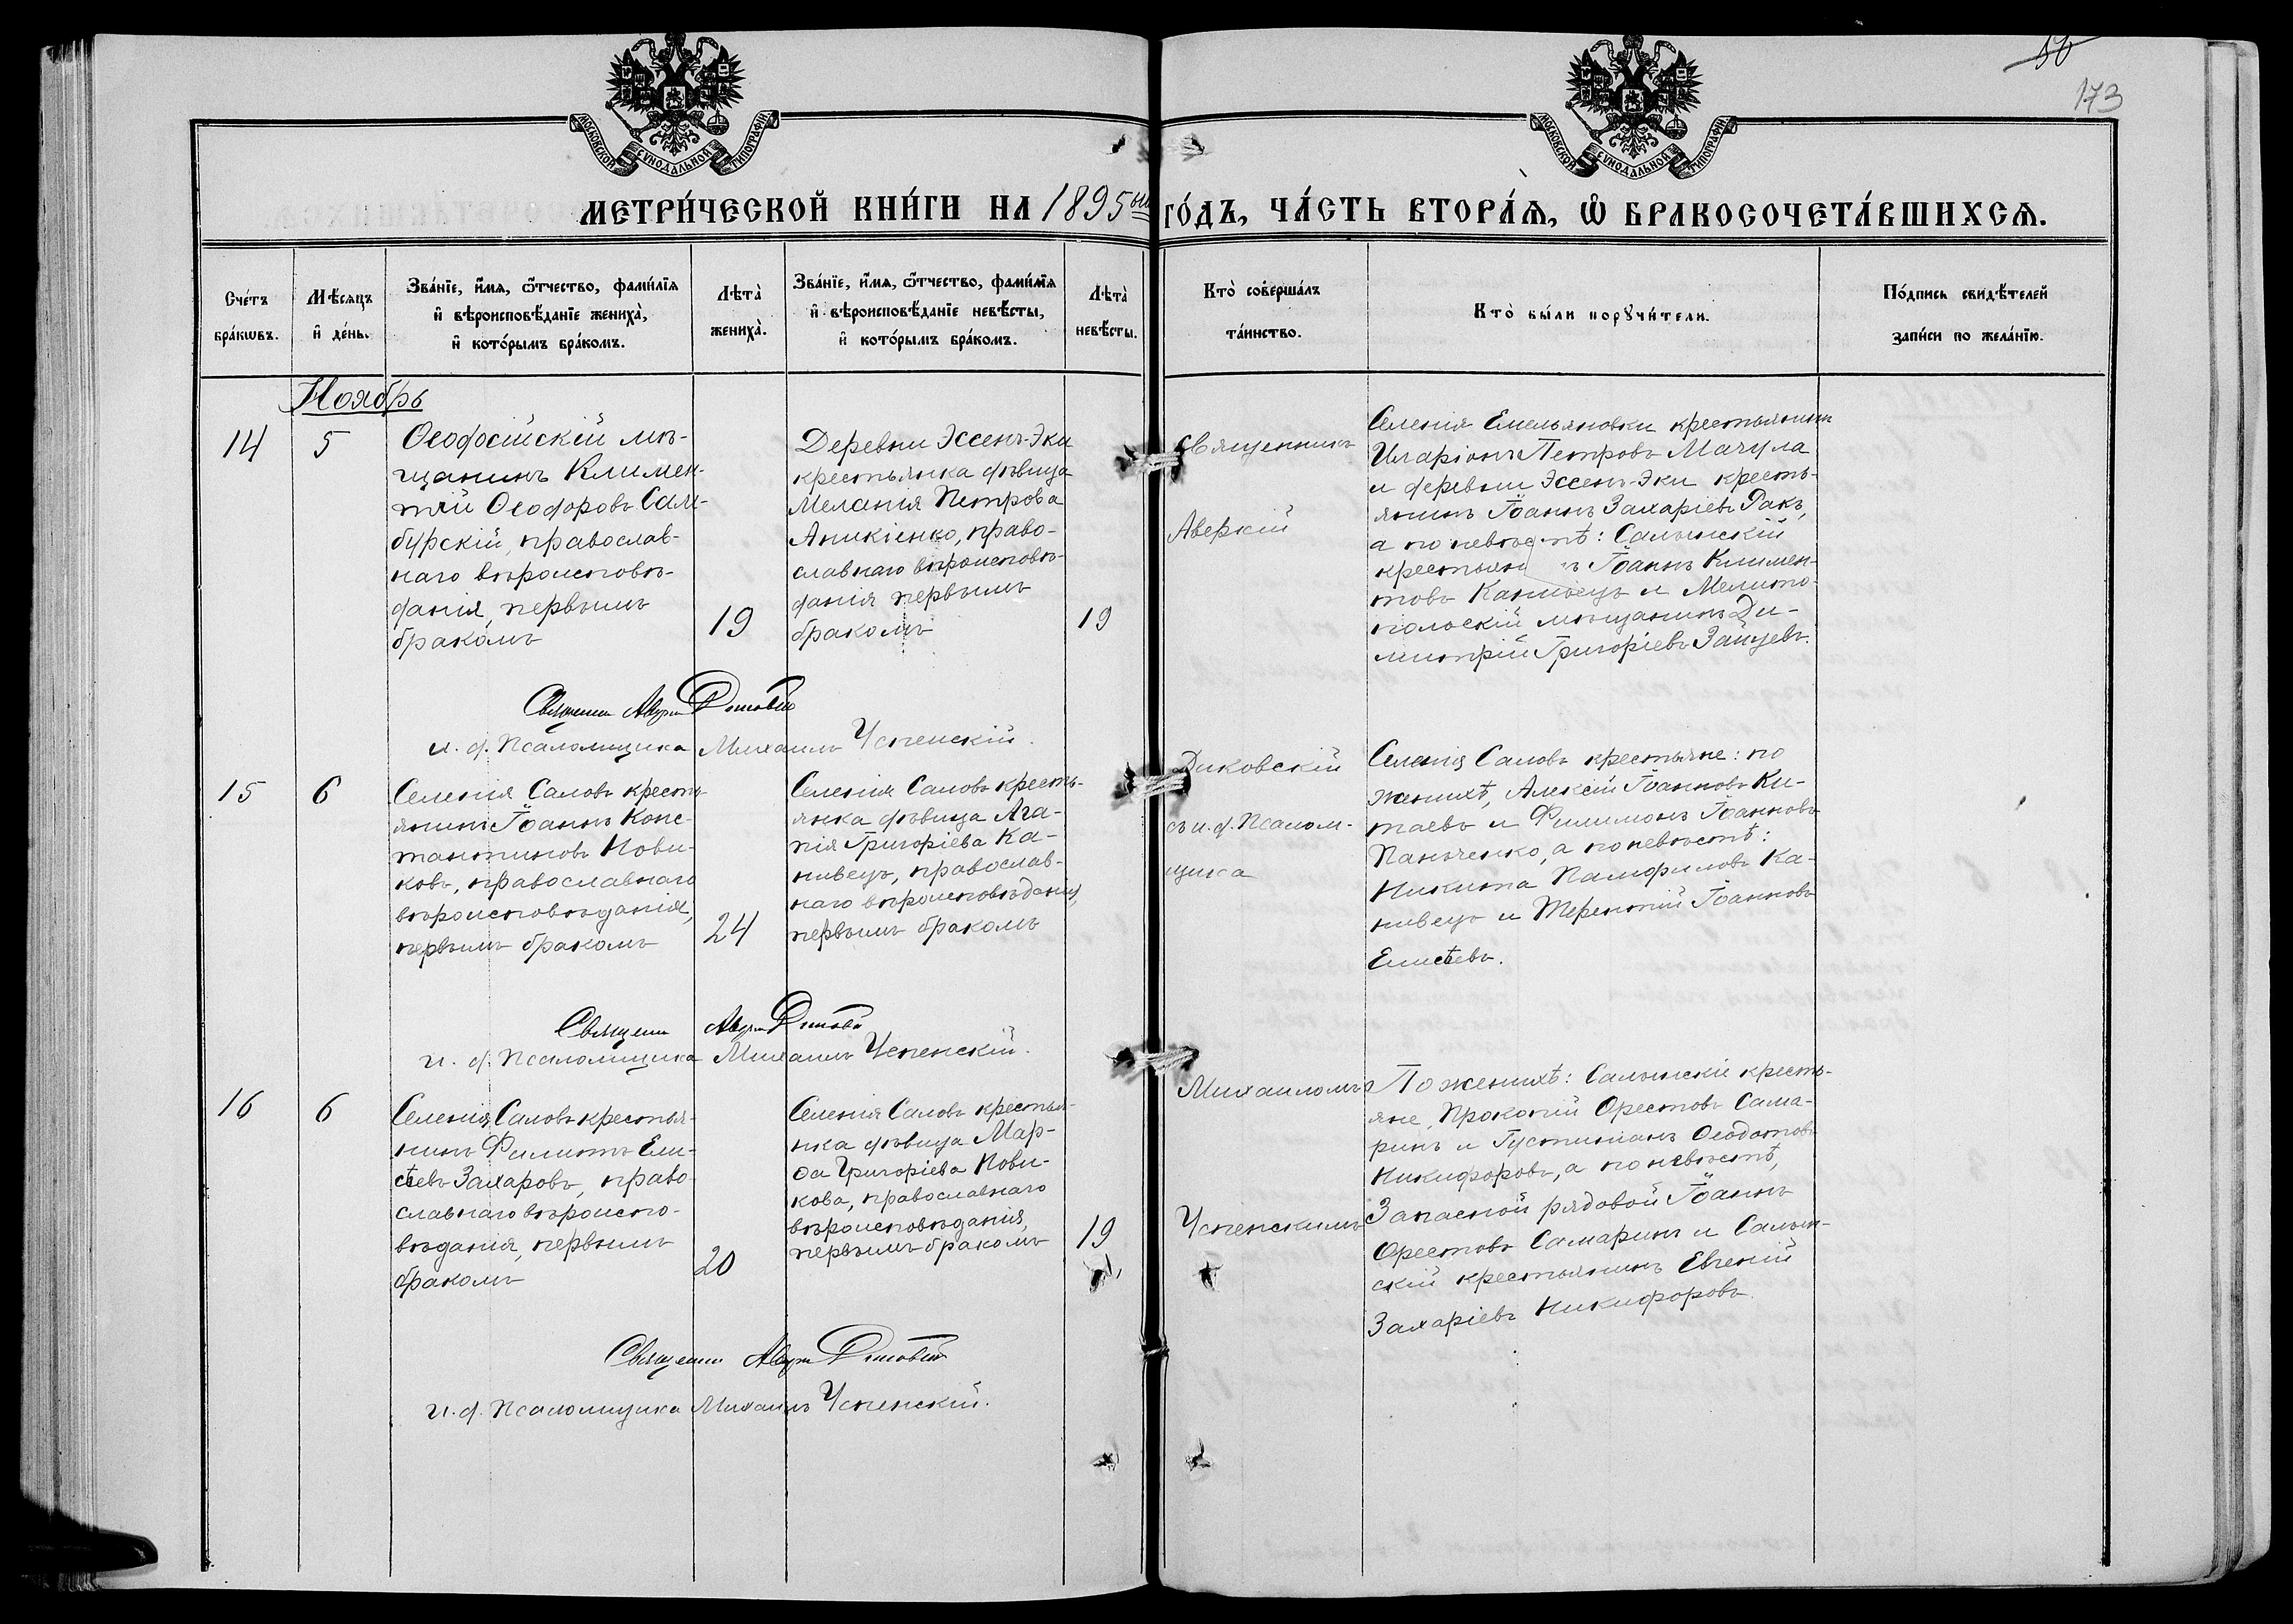 МОСКОВСКОЙ СѴНОДАЛЬНОЙ ТИПОГРАФІИ
МОСКОВСКОЙ СѴНОДАЛЬНОЙ ТИПОГРАФІИ
173
МЕТРИ́ЧЕСКОЙ КНИ́ГИ НА 1895ый ГО́ДЪ, ЧА́СТЬ ВТОРА́Ѧ, Ѽ БРАКОСОЧЕТА́ВШИХСѦ.
Сче́тъ
бра́кѡвъ.
Мѣ́сѧцъ
и҆ де́нь.
Зва́нїе, и҆́мѧ, ѻ҆́тчество, фами́лїѧ
и҆ вѣроисповѣ́данїе жениха̀,
и҆ кото́рымъ бра́комъ.
Лѣта̀
жениха̀.
Зва́нїе, и҆́мѧ, ѻ҆́тчество, фами́лїѧ
и҆ вѣроисповѣ́данїе невѣ́сты,
и҆ кото́рымъ бра́комъ.
Лѣта̀
невѣ́сты.
Кто̀ соверша́лъ
та́инство.
Кто̀ бы́ли порꙋчи́тели.
По́дпись свидѣ́телей
за́писи по жела́нїю.
Ноябрь
14
5
Ѳеодосійскій мѣ-
щанинъ Климен-
тій Ѳеодоровъ Сам-
бурскій, православ-
наго вѣроисповѣ-
данія, первымъ
бракомъ
19
Деревни Эссенъ-Эки
крестьянка дѣвица
Меланія Петрова
Аникіенко, право-
славнаго вѣроисповѣ-
данія первымъ
бракомъ
19
Священникъ
Аверкій
Селенія Емельяновки крестьянинъ
Иларіонъ Петровъ Мачула
и деревни Эссенъ-Эки кресть-
янинъ Іоаннъ Захаріевъ Ракъ,
а по невѣстѣ: Салынскій
Іоаннъ Климен-
товъ Канивецъ и Мелито-
польскій мѣщанинъ Ди-
митрій Григоріевъ Зайцевъ.
Священн
и. д. Псаломщика Михаилъ Успенскій.
15
6
Селенія Саловъ кресть-
янинъ Іоаннъ Конс-
тантиновъ Нови-
ковъ, православнаго
вѣроисповѣданія,
первымъ бракомъ
24
Селенія Саловъ кресть-
янка дѣвица Ага-
пія Григоріева Ка-
нивецъ, православ-
наго вѣроисповѣданія,
первымъ бракомъ
Диковскій
съ и. д. Псалом-
щика
Селенія Саловъ крестьяне: по
женихѣ, Алексій Іоанновъ Ки-
таевъ и Филимонъ Іоанновъ
Панченко, а по невѣстѣ:
Никита Памфиловъ Ка-
нивецъ и Терентій Іоанновъ
Елисѣевъ.
Священн
и. д. Псаломщика Михаилъ Успенскій.
16
6
Селенія Саловъ крестья-
нинъ Филиппъ Ели-
сѣевъ Захаровъ, право-
славнаго вѣроиспо-
вѣданія, первымъ
бракомъ
20
Селенія Саловъ крестья-
нка дѣвица Мар-
ѳа Григоріева Нови-
кова, православнаго
вѣроисповѣданія,
первымъ бракомъ
19
Михаиломъ
Успенскимъ
По женихѣ: Салынскіе кресть-
яне, Прокопій Орестовъ Сама-
ринъ и Іустиніанъ Ѳеодотовъ
Никифоровъ, а по невѣстѣ,
Запасной рядовой Іоаннъ
Орестовъ Самаринъ и Салын-
скій крестьянинъ Евгеній
Захаріевъ Никифоровъ.
Священн
и. д. Псаломщика Михаилъ Успенскій.